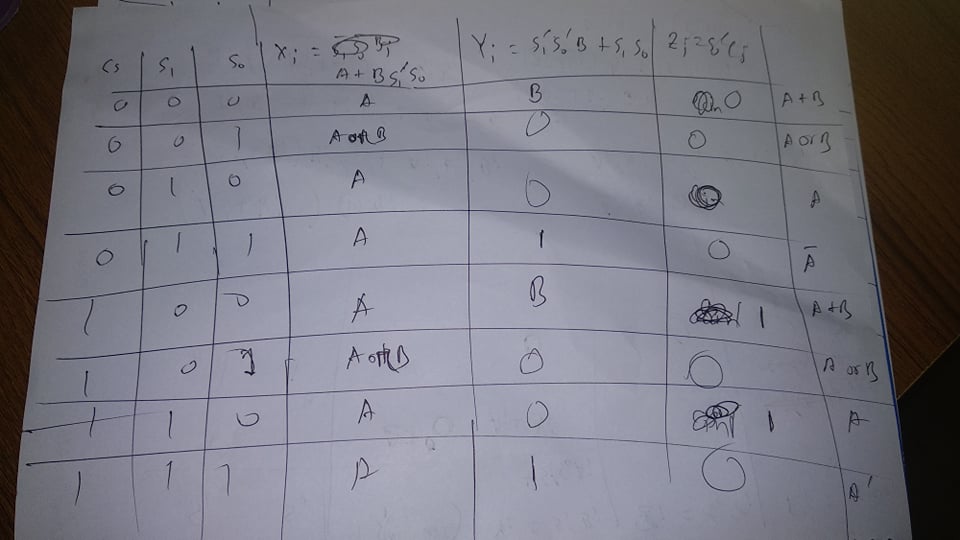 Cs S₁ S₀ Xᵢ = A + B S₁'S₀ Yᵢ = S₁'S₀'B + S₁S₀ Zᵢ = S₀'Cᵢ
0 0 0 A B 0 A+B
0 0 1 A or B 0 0 A or B
0 1 0 A 0 A
0 1 1 A 1 0 A̅
1 0 0 A B 1 A+B
1 0 1 A or B 0 0 A or B
1 1 0 A 0 1 A
1 1 1 A 1 0 A'